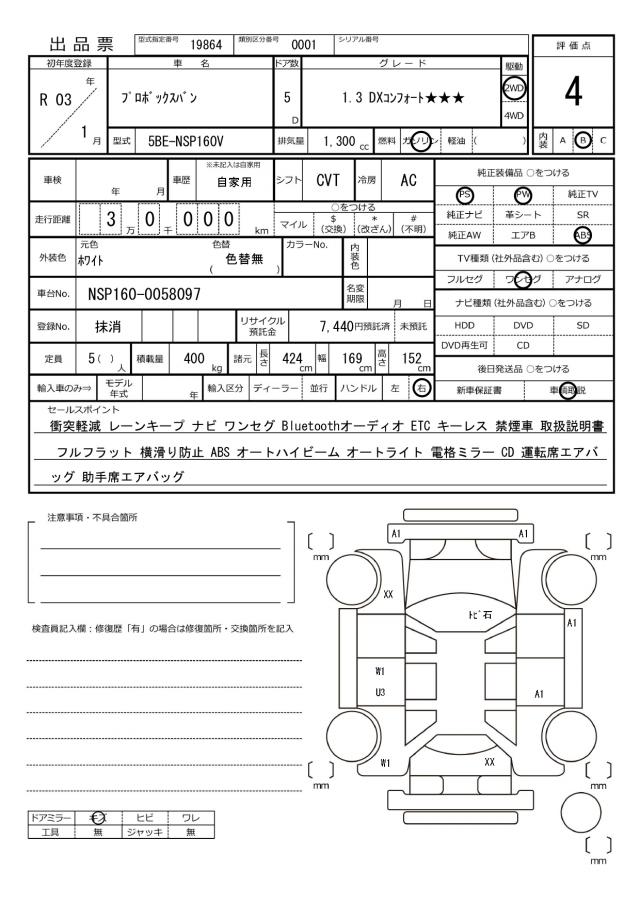 出品票
型式指定番号 19864 類別区分番号 0001 シリアル番号
評価点
4
初年度登録 車名 ドア数 グレード 駆動
R 03 年 1 月
プロボックスバン 5 D 1.3 DXコンフォート★★★ 2WD 4WD
型式 5BE-NSP160V 排気量 1,300 cc 燃料 ガソリン 軽油 ( ) 内装 A B C
車検 年 月 車歴 ※未記入は自家用 自家用 シフト CVT 冷房 AC
純正装備品 ○をつける
PS PW 純正TV
純正ナビ 革シート SR
純正AW エアB ABS
走行距離 3 万 0 千 0 0 0 km
○をつける
マイル $ (交換) * (改ざん) # (不明)
外装色 元色 ホワイト 色替 ( 色替無 ) カラーNo. 内装色
TV種類 (社外品含む) ○をつける
フルセグ ワンセグ アナログ
車台No. NSP160-0058097 名変期限 月 日
ナビ種類 (社外品含む) ○をつける
HDD DVD SD
DVD再生可 CD
登録No. 抹消 リサイクル預託金 7,440円預託済 未預託
定員 5 ( ) 人 積載量 400 kg 諸元 長さ 424 cm 幅 169 cm 高さ 152 cm
後日発送品 ○をつける
新車保証書 車輌取説
輸入車のみ⇒ モデル年式 年 輸入区分 ディーラー 並行 ハンドル 左 右
セールスポイント
衝突軽減 レーンキープ ナビ ワンセグ Bluetoothオーディオ ETC キーレス 禁煙車 取扱説明書
フルフラット 横滑り防止 ABS オートハイビーム オートライト 電格ミラー CD 運転席エアバ
ッグ 助手席エアバッグ
注意事項・不具合箇所
A1 A1
[ ] mm [ ] mm
XX
トビ石
A1
検査員記入欄：修復歴「有」の場合は修復箇所・交換箇所を記入
W1
U3 A1
W1 XX
[ ] mm [ ] mm
ドアミラー キズ ヒビ ワレ
工具 無 ジャッキ 無
[ ] mm